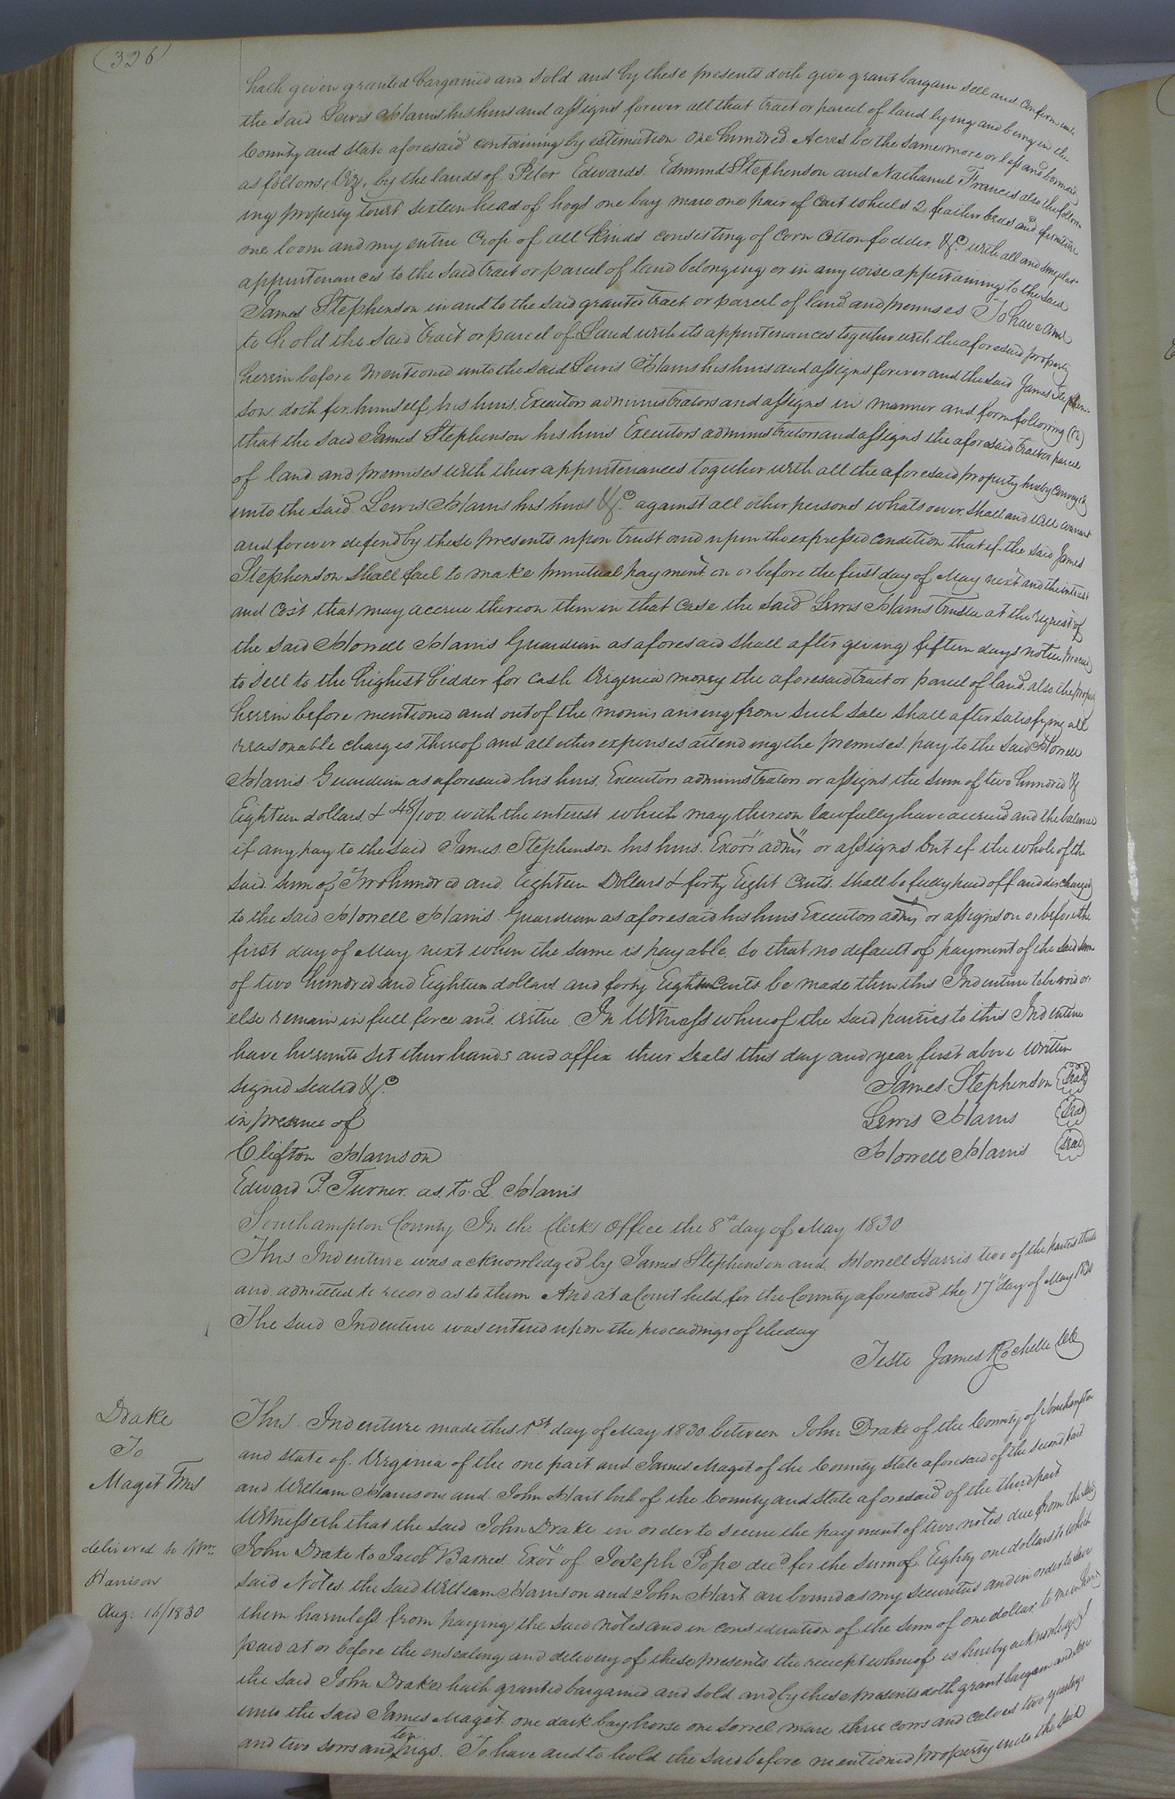 (326)
hath given granted bargained and sold and by these presents doth give grant bargain sell and confirm unto
the said Lewis Harris his heirs and assigns forever all that tract or parcel of land lying and being in the
County and State aforesaid containing by estimation One hundred Acres be the same more or less and bounded
as follows, Viz, by the lands of Peter Edwards Edmund Stephenson and Nathaniel Francis also the follow
ing property towit sixteen head of hogs one bay mare one pair of cart wheels 2 feather beds and furniture
one loom and my entire Crop of all kinds consisting of Corn Cotton fodder, &c with all and singular
appurtenances to the said tract or parcel of land belonging or in any wise appertaining to the said
James Stephenson in and to the said granted tract or parcel of land and premises To have and
to hold the said tract or parcel of Land with its appurtenances together with the aforesaid property
herein before mentioned unto the said Lewis Harris his heirs and assigns forever and the said James Stephen-
son doth for himself, his heirs, Executors administrators and assigns in manner and form following
that the said James Stephenson his heirs Executors administrators and assigns the aforesaid tract or parcel
of land and premises with their appurtenances together with all the aforesaid property hereby conveyed
unto the said Lewis Harris his heirs &c against all other persons whatsoever shall and will warrant
and forever defend by these presents upon trust and upon the expressed condition that if the said James
Stephenson shall fail to make punctual payment on or before the first day of May next and the interest
and Cost that may accrue thereon then in that case the said Lewis Harris trustee at the request of
the said Howell Harris Guardian as aforesaid shall after giving fifteen days notice proceed
to sell to the highest bidder for cash Virginia money the aforesaid tract or parcel of land also the property
herein before mentioned and out of the monies arising from such sale shall after satisfying all
reasonable charges thereof and all other expenses attending the premises pay to the said Howell
Harris Guardian as aforesaid his heirs, Executors administrators or assigns the sum of two hundred &
Eighteen dollars & 48/100 with the interest which may thereon lawfully have accrued and the balance
if any pay to the said James Stephenson his heirs. Exors admrs or assigns but if the whole of the
said sum of Two hundred and Eighteen Dollars & forty Eight Cents shall be fully paid off and discharged
to the said Howell Harris Guardian as aforesaid his heirs Executors admrs or assigns on or before the
first day of May next when the same is payable so that no default of payment of the said sum
of two hundred and Eighteen dollars and forty Eight Cents be made then this Indenture to be void or
else remain in full force and virtue. In Witness whereof the said parties to this Indenture
have hereunto set their hands and affix their seals this day and year first above written
signed sealed &c James Stephenson Seal
in presence of Lewis Harris Seal
Clifton Harrison Howell Harris Seal
Edward P. Turner as to L Harris
Southampton County In the Clerks Office the 8th day of May 1830
This Indenture was acknowledged by James Stephenson and Howell Harris two of the parties thereto
and admitted to record as to them And at a Court held for the County aforesaid the 17 day of May 1830
The said Indenture was entered upon the proceedings of the day
Teste James Rochelle
Drake
To
Maget
delivered to Wm.
Harrison
Aug: 14/1830
This Indenture made this 1st day of May 1830 between John Drake of the County of Southampton
and State of Virginia of the one part and James Maget of the County State aforesaid of the second part
and William Harrison and John Hart both of the County and State aforesaid of the third part
Witnesseth that the said John Drake in order to secure the payment of two notes due from the said
John Drake to Jacob Barnes Exor of Joseph Pope decd for the sum of Eighty one dollars to which
said Notes the said William Harrison and John Hart are bound as my securities and in order to save
them harmless from paying the said notes and in consideration of the sum of one dollar to me in hand
paid at or before the ensealing and delivery of these presents the receipt whereof is hereby acknowledged
the said John Drake hath granted bargained and sold and by these presents doth grant bargain and sell
unto the said James Maget one dark bay horse one sorrel mare three cows and calves two yearlings
and two sows and ten pigs. To have and to hold the said before mentioned property unto the said